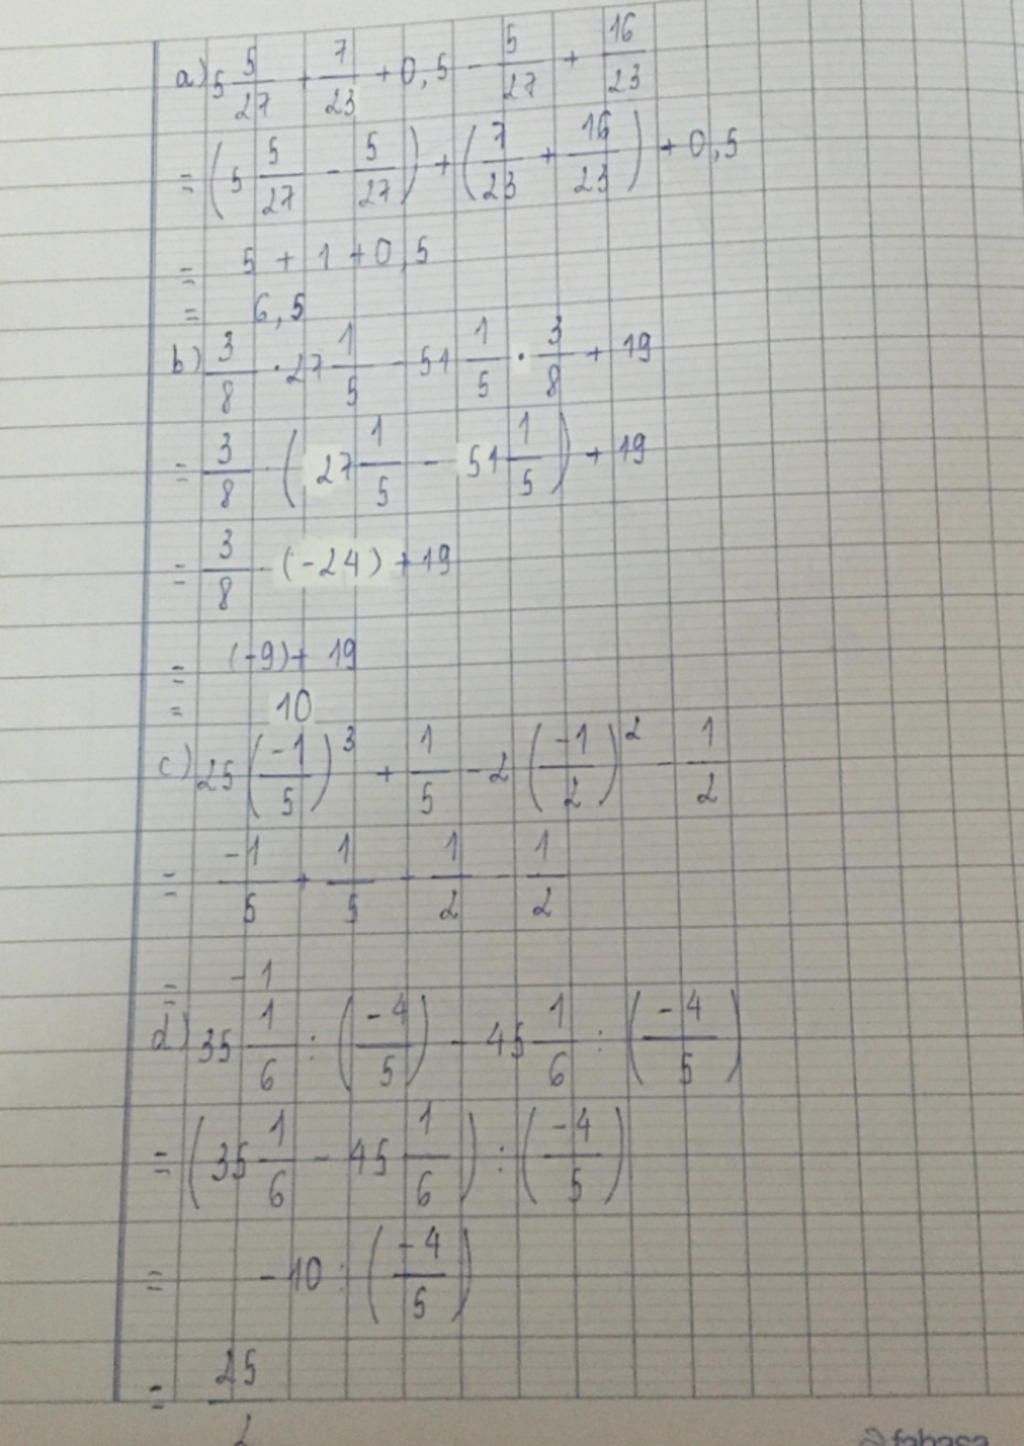 a) 5 5/27 + 7/23 + 0,5 - 5/27 + 16/23
= (5 5/27 - 5/27) + (7/23 + 16/23) + 0,5
= 5 + 1 + 0,5
= 6,5
b) 3/8 . 27 1/5 - 51 1/5 . 3/8 + 19
= 3/8 . (27 1/5 - 51 1/5) + 19
= 3/8 . (-24) + 19
= (-9) + 19
= 10
c) 25 (-1/5)³ + 1/5 - 2 (-1/2)² - 1/2
= -1/5 + 1/5 - 1/2 - 1/2
= -1
d) 35 1/6 : (-4/5) - 45 1/6 : (-4/5)
= (35 1/6 - 45 1/6) : (-4/5)
= -10 : (-4/5)
= 25/2